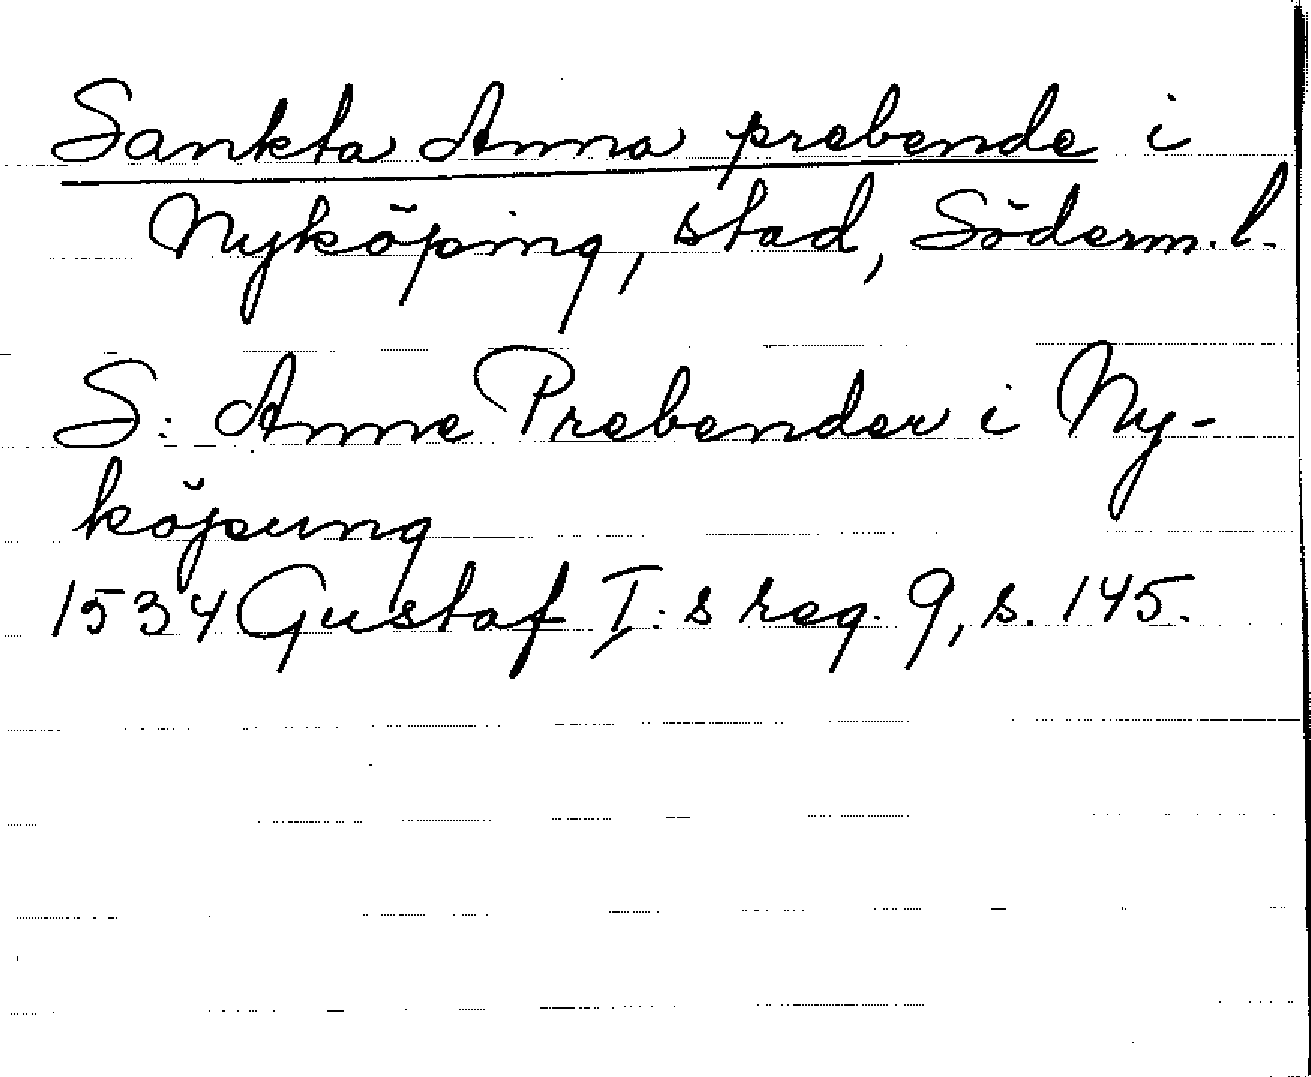 Sankta Anna prebende i
Nyköping, stad, Söderm. l.
S: Anne Prebender i Ny-
köpung
1534 Gustaf I:s reg. 9, s. 145.